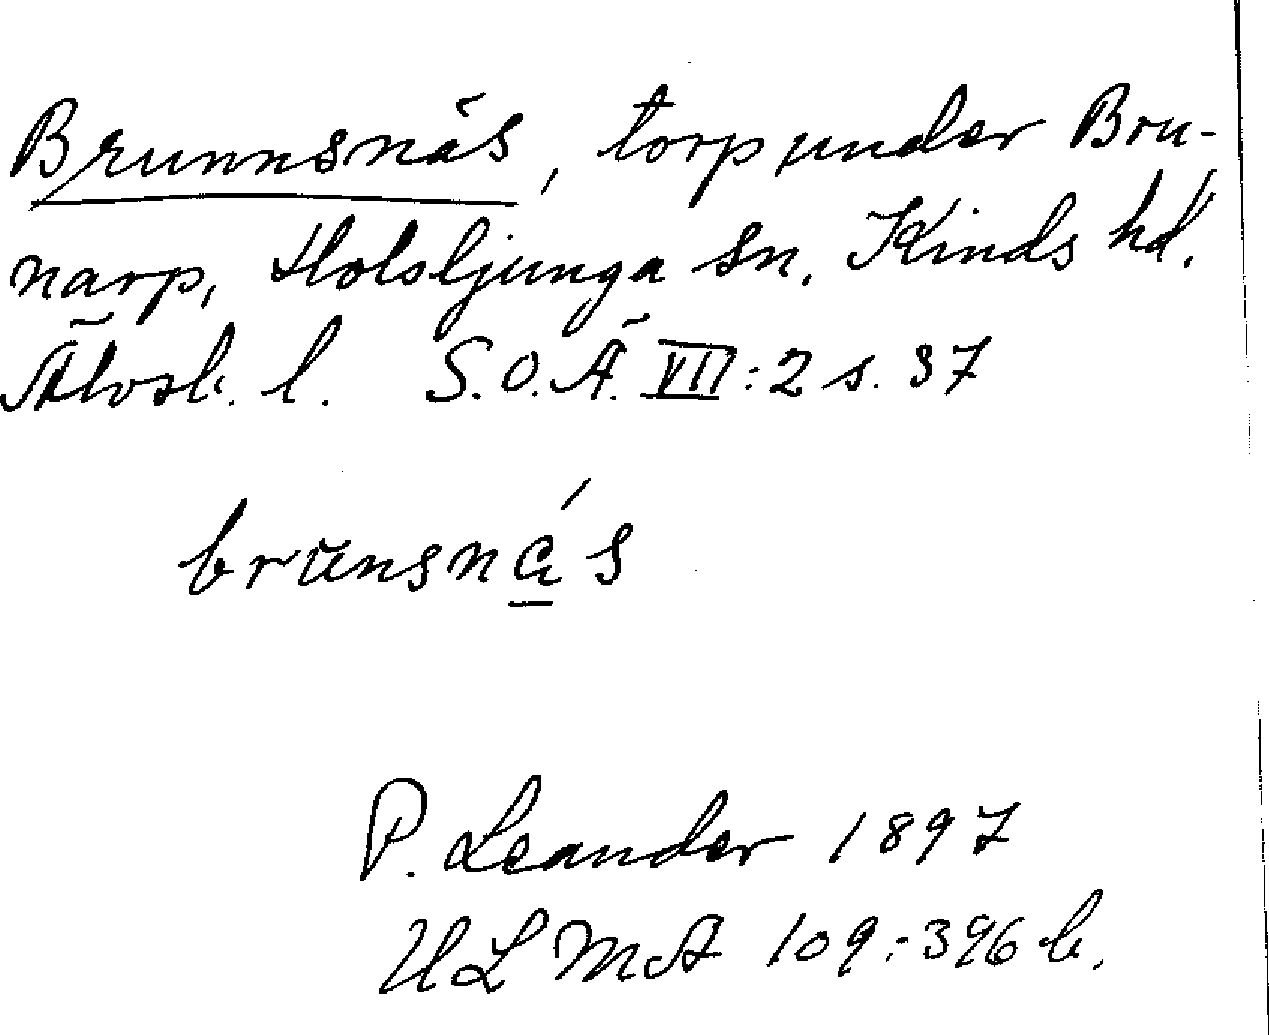 Brunnsnäs, torp under Bru-
narp, Holsljunga sn. Kinds hd.
Älvsb. l. S.O.Ä. VII:2 s. 37
brunsnás
P. Leander 1897
ULMA 109:396 b.